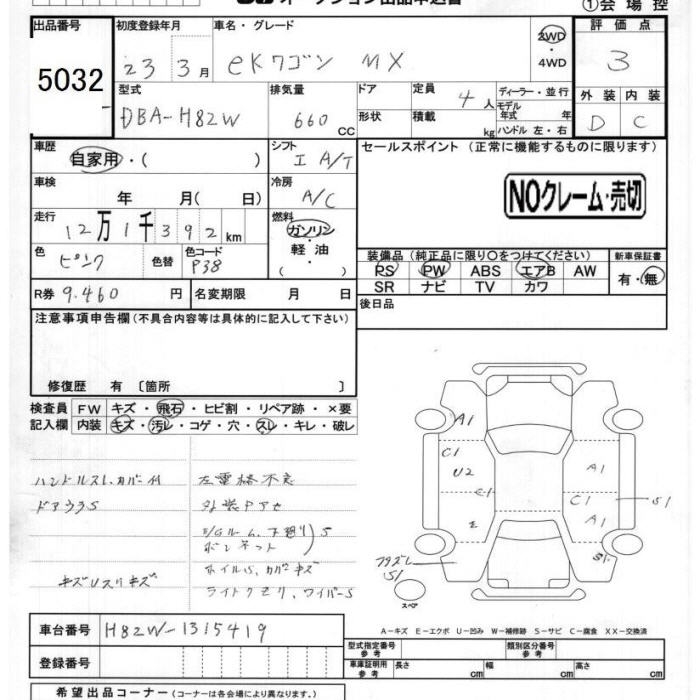 オークション出品申込書
①会場控
出品番号 初度登録年月 車名・グレード 評価点
5032 23 3月 eKワゴン MX 2WD・4WD 3
型式 排気量 ドア 定員 ディーラー・並行 外装 内装
DBA-H82W 660 CC 形状 積載 4人 kg モデル年式 年 ハンドル 左・右 D C
車歴 自家用・( ) シフト I A/T セールスポイント (正常に機能するものに限ります)
車検 年 月( 日) 冷房 A/C
NOクレーム・売切
走行 12万1千392km 燃料 ガソリン・軽油・( )
色 ピンク 色替 色コード P38
装備品 (純正品に限り○をつけてください) 新車保証書
PS PW ABS エアB AW 有・無
SR ナビ TV カワ
R券 9.460円 名変期限 月 日 後日品
注意事項申告欄 (不具合内容等は具体的に記入して下さい)
修復歴 有 [箇所 ]
検査員 FW キズ・飛石・ヒビ割・リペア跡・×要
記入欄 内装 キズ・汚レ・コゲ・穴・スレ・キレ・破レ
ハンドルスレ、カバー付 左電格不良
ドアウラS 外装Pアセ
E/Gルーム、下廻り)S
ボンネット
キズUスリキズ ホイルS、カバキズ
ライトクモリ、ワイパーS
A1
C1
U2
C1
E
A1
C1
A1
S1
S1
フタズレ
S1
スペア
A-キズ E-エクボ U-凹み W-補修跡 S-サビ C-腐食 XX-交換済
車台番号 H82W-1315419
登録番号
型式指定番号 参考 類別区分番号 参考
車庫証明用 参考 長さ cm 幅 cm 高さ cm
希望出品コーナー (コーナーは各会場により異なります。)